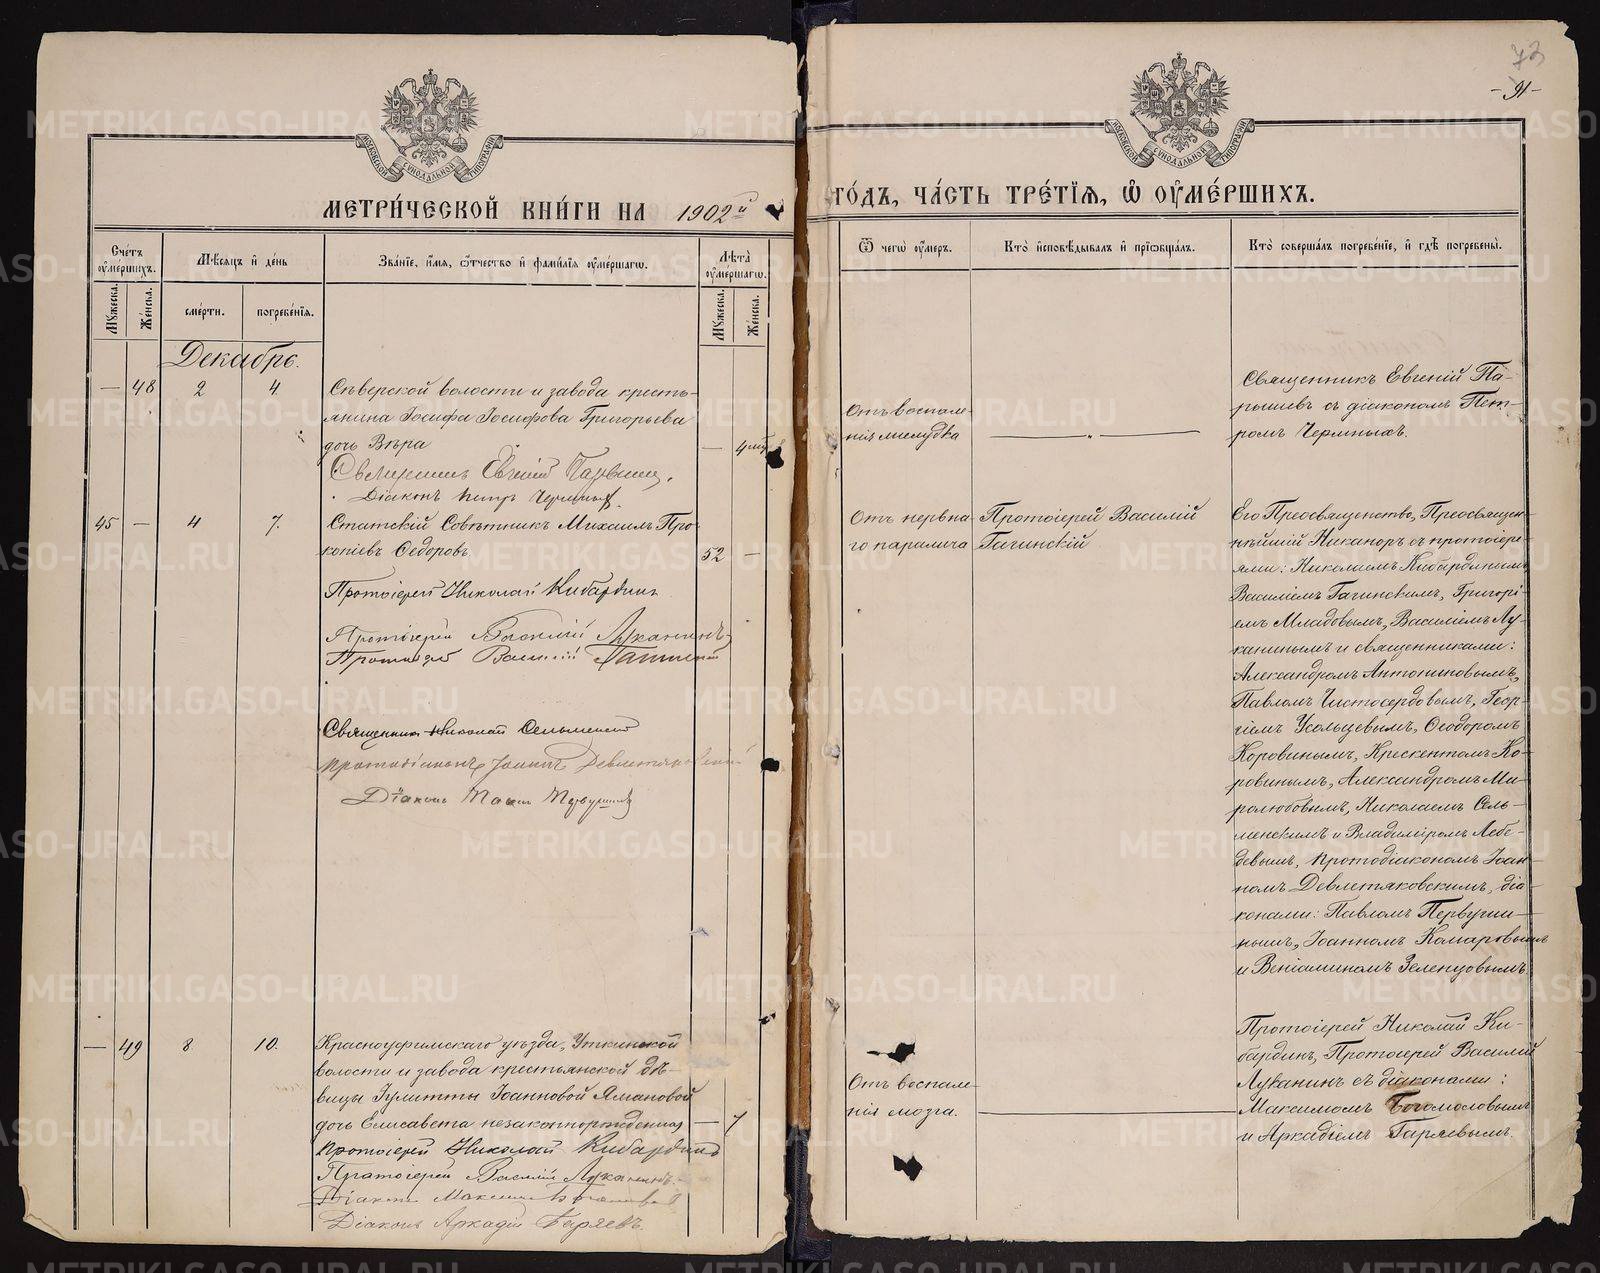 73
-91-
МОСКОВСКОЙ СѴНОДАЛЬНОЙ ТИПОГРАФІИ
МОСКОВСКОЙ СѴНОДАЛЬНОЙ ТИПОГРАФІИ
МЕТРИ́ЧЕСКОЙ КНИ́ГИ НА 1902й
ГО́ДЪ, ЧА́СТЬ ТРЕ́ТІѦ, Ѽ ОУ҆МЕ́РШИХЪ.
Сче́тъ оу҆ме́ршихъ.
Мꙋжеска.
Же́нска.
Мѣ́сѧцъ и҆ де́нь
сме́рти.
погребе́нїѧ.
Зва́нїе, и҆́мѧ, ѻ҆́тчество и҆ фами́лїѧ оу҆ме́ршагѡ.
Лѣ́та оу҆ме́ршагѡ.
Мꙋжеска.
Же́нска.
Ѿ чегѡ̀ оу҆́меръ.
Кто̀ и҆сповѣ́дывалъ и҆ прїѡбща́лъ.
Кто̀ соверша́лъ погребе́нїе, и҆ гдѣ̀ погребены̀.
Декабрь.
— 48 2 4
Сѣверской волости и завода кресть-
янина Іосифа Іосифова Григорьева
дочь Вѣра
— 4
Священникъ Евгеній
Діаконъ Петръ Черныхъ.
Отъ воспале-
нія желудка
Священникъ Евгеній Па-
рышевъ съ діакономъ Пет-
ромъ Черныхъ.
45 — 4 7.
Статскій Совѣтникъ Михаилъ Про-
копіевъ Ѳедоровъ
52 —
Протоіерей Николай Кибардинъ
Протоіерей Василій Луканинъ
Протоіерей Василій Гагинскій
Священникъ Николай Сельменскій
Протодіаконъ Іоаннъ Девлетьяковскій
Діаконъ Павелъ Первушинъ
Отъ нервна-
го паралича
Протоіерей Василій
Гагинскій
Его Преосвященство, Преосвящен-
нѣйшій Никаноръ съ протоіере-
ями: Николаемъ Кибардинымъ
Василіемъ Гагинскимъ, Григорі-
емъ Младовымъ, Василіемъ Лу-
канинымъ и священниками:
Александромъ Антониновымъ,
Павломъ Чистосердовымъ, Геор-
гіемъ Усольцевымъ, Ѳеодоромъ
Коровинымъ, Крескентомъ Ко-
ровинымъ, Александромъ Ми-
ролюбовымъ, Николаемъ Сель-
менскимъ и Владиміромъ Лебе-
девымъ, Протодіакономъ Іоан-
номъ Девлетьяковскимъ, діа-
конами: Павломъ Первуши-
нымъ, Іоанномъ Комаровымъ
и Веніаминомъ Зеленцовымъ.
— 49 8 10.
Красноуфимскаго уѣзда, Уткинской
волости и завода крестьянской дѣ-
вицы Іулитты Іоанновой Ямановой
дочь Елисавета незаконнорожденная
— 7
Протоіерей Николай Кибардинъ
Протоіерей Василій Луканинъ
Діаконъ Максимъ Богомоловъ
Діаконъ Аркадій Гаряевъ.
Отъ воспале-
нія мозга.
Протоіерей Николай Ки-
бардинъ, Протоіерей Василій
Луканинъ съ діаконами:
Максимомъ Богомоловымъ
и Аркадіемъ Гаряевымъ.
METRIKI.GASO-URAL.RU